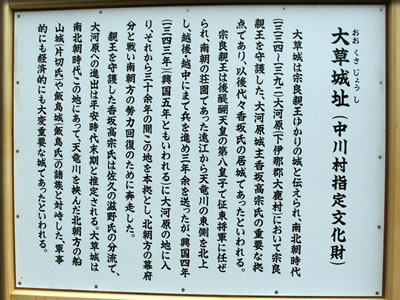 大草城址（中川村指定文化財）
おおくさじょうし
大草城は宗良親王ゆかりの城と伝えられ、南北朝時代
（一三三四～一三九二）大河原（下伊那郡大鹿村）において宗良
親王を守護した、大河原城主香坂高宗氏の重要な拠
点であり、以後代々香坂氏の居城であったといわれる。
宗良親王は後醍醐天皇の第八皇子で征東将軍に任ぜ
られ、南朝の荘園であった遠江から天竜川の東側を北上
し、越後・越中にまで兵を進め三年余を送ったが、興国四年
（一三四三年）（興国五年ともいわれる）に大河原の地に入
り、それから三十余年の間この地を本拠とし、北朝方の幕府
分と戦い南朝方の勢力回復のために奔走した。
親王を守護した香坂高宗氏は佐久の滋野氏の分流で、
大河原への進出は平安時代末期と推定される。大草城は
南北朝時代、この地にあって、天竜川を挟んだ北朝方の船
山城（片切氏）や飯島城（飯島氏）の諸族と対峙した、軍事
的にも経済的にも大変重要な城であったといわれる。